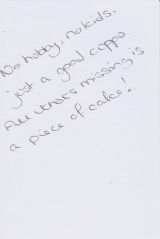 No hubby, no kids,
just a good cuppa.
All that's missing is
a piece of cake!